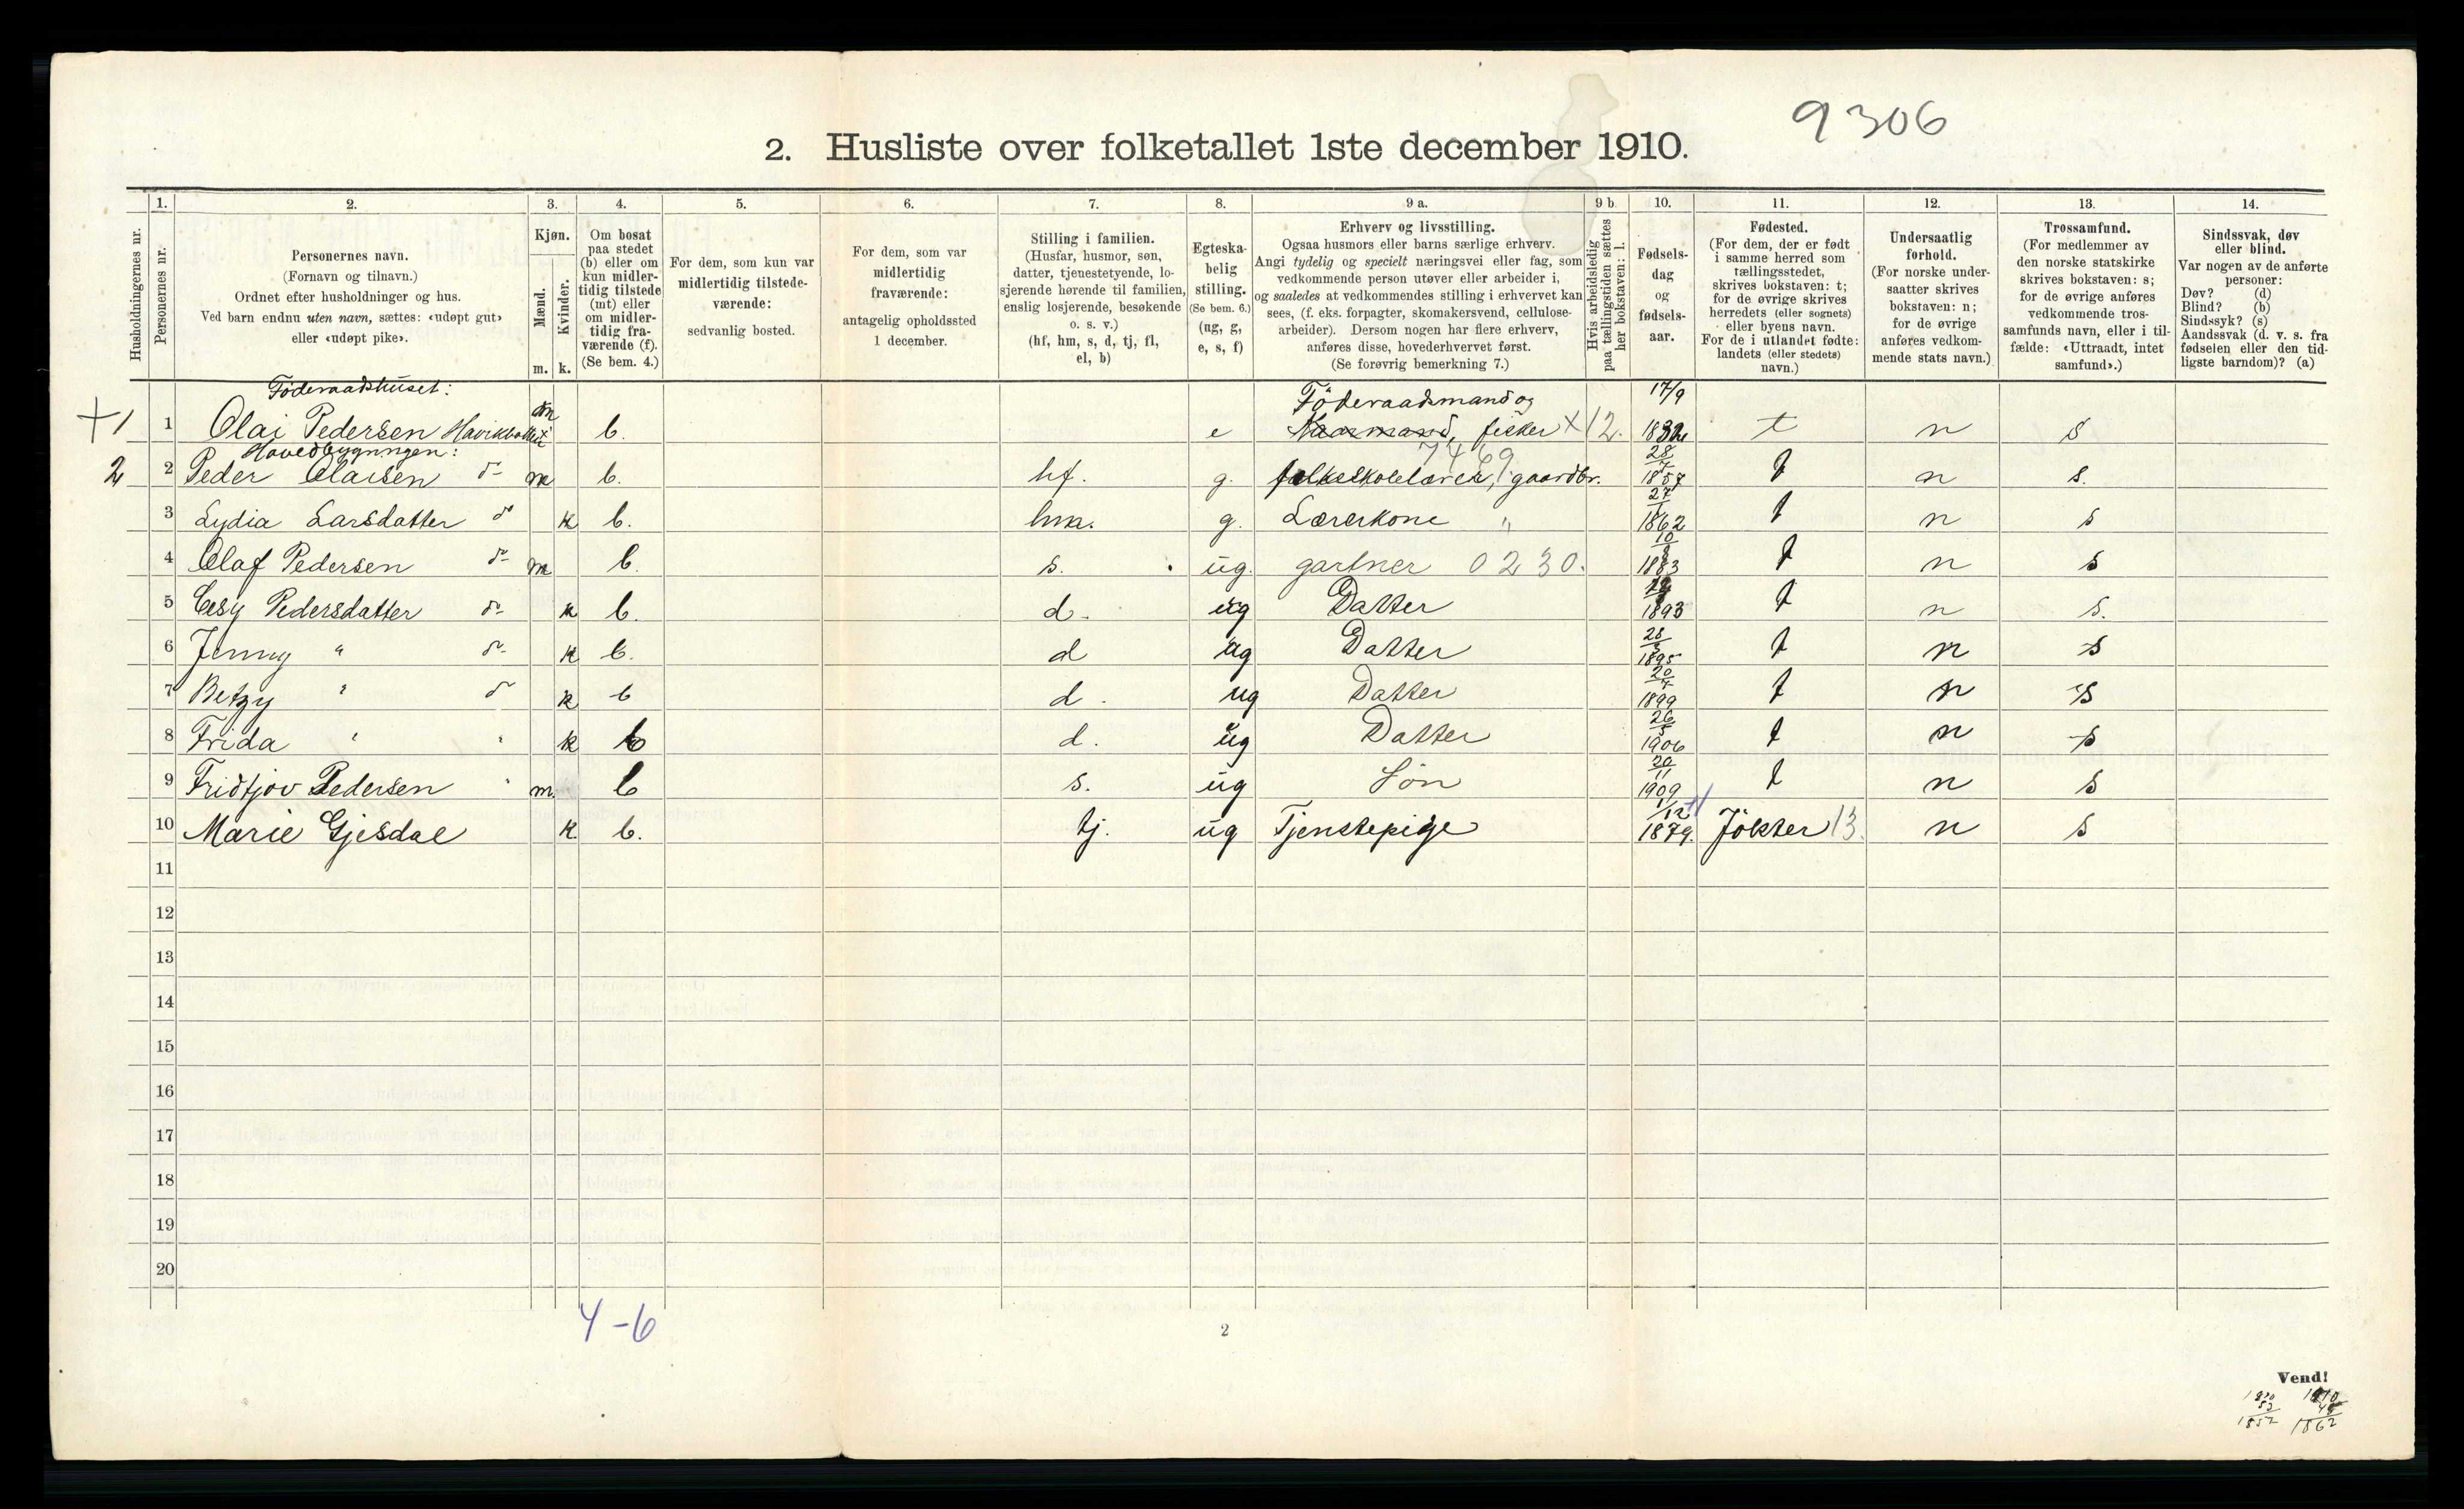 9306
2. Husliste over folketallet 1ste december 1910.
Husholdningernes nr.
1. Personernes nr.
2. Personernes navn.
(Fornavn og tilnavn.)
Ordnet efter husholdninger og hus.
Ved barn endnu uten navn, sættes: «udøpt gut»
eller «udøpt pike».
3. Kjøn.
Mænd. m.
Kvinder. k.
4. Om bosat
paa stedet
(b) eller om
kun midler-
tidig tilstede
(mt) eller
om midler-
tidig fra-
værende (f).
(Se bem. 4.)
5. For dem, som kun var
midlertidig tilstede-
værende:
sedvanlig bosted.
6. For dem, som var
midlertidig
fraværende:
antagelig opholdssted
1 december.
7. Stilling i familien.
(Husfar, husmor, søn,
datter, tjenestetyende, lo-
sjerende hørende til familien,
enslig losjerende, besøkende
o. s. v.)
(hf, hm, s, d, tj, fl,
el, b)
8. Egteska-
belig
stilling.
(Se bem. 6.)
(ug, g,
e, s, f)
9 a. Erhverv og livsstilling.
Ogsaa husmors eller barns særlige erhverv.
Angi tydelig og specielt næringsvei eller fag, som
vedkommende person utøver eller arbeider i,
og saaledes at vedkommendes stilling i erhvervet kan
sees, (f. eks. forpagter, skomakersvend, cellulose-
arbeider). Dersom nogen har flere erhverv,
anføres disse, hovederhvervet først.
(Se forøvrig bemerkning 7.)
9 b. Hvis arbeidsledig
paa tællingstiden sættes
her bokstaven: l.
10. Fødsels-
dag
og
fødsels-
aar.
11. Fødested.
(For dem, der er født
i samme herred som
tællingsstedet,
skrives bokstaven: t;
for de øvrige skrives
herredets (eller sognets)
eller byens navn.
For de i utlandet fødte:
landets (eller stedets)
navn.)
12. Undersaatlig
forhold.
(For norske under-
saatter skrives
bokstaven: n;
for de øvrige
anføres vedkom-
mende stats navn.)
13. Trossamfund.
(For medlemmer av
den norske statskirke
skrives bokstaven: s;
for de øvrige anføres
vedkommende tros-
samfunds navn, eller i til-
fælde: «Uttraadt, intet
samfund».)
14. Sindssvak, døv
eller blind.
Var nogen av de anførte
personer:
Døv? (d)
Blind? (b)
Sindssyk? (s)
Aandssvak (d. v. s. fra
fødselen eller den tid-
ligste barndom)? (a)
Föderaadshuset: Föderaadsmand og 17/9
1 1 Olai Pedersen b. e fisker x12. t n s
Hovedbygningen: 7469 28/7
2 2 Peder Olaisen do m b. hf. g. folkeskolelærer, gaardbr. 1857 t n s.
27/1
3 Lydia Larsdatter do k b. hm. g. Lærerkone " 1862 t n s
4 Olaf Pedersen do m b. s. ug. gartner 0230. 1883 t n s
5 Pedersdatter do k b. d. ug Datter 1893 t n s.
28/3
6 Jenny " do k b. d ug Datter 1895 t n s
20/7
7 Betzy " do k b d. ug Datter 1899 t n s
26/5
8 Frida " " k b d. ug Datter 1906 t n s
20/11
9 Fridtjov Pedersen " m. b s. ug Søn 1909 t n s
1/12
10 Marie Gjesdal k b. tj. ug Tjenstepige 1879. Jökster 13. n s
11
12
13
14
15
16
17
18
19
20
4-6
2
Vend!
1852 1862